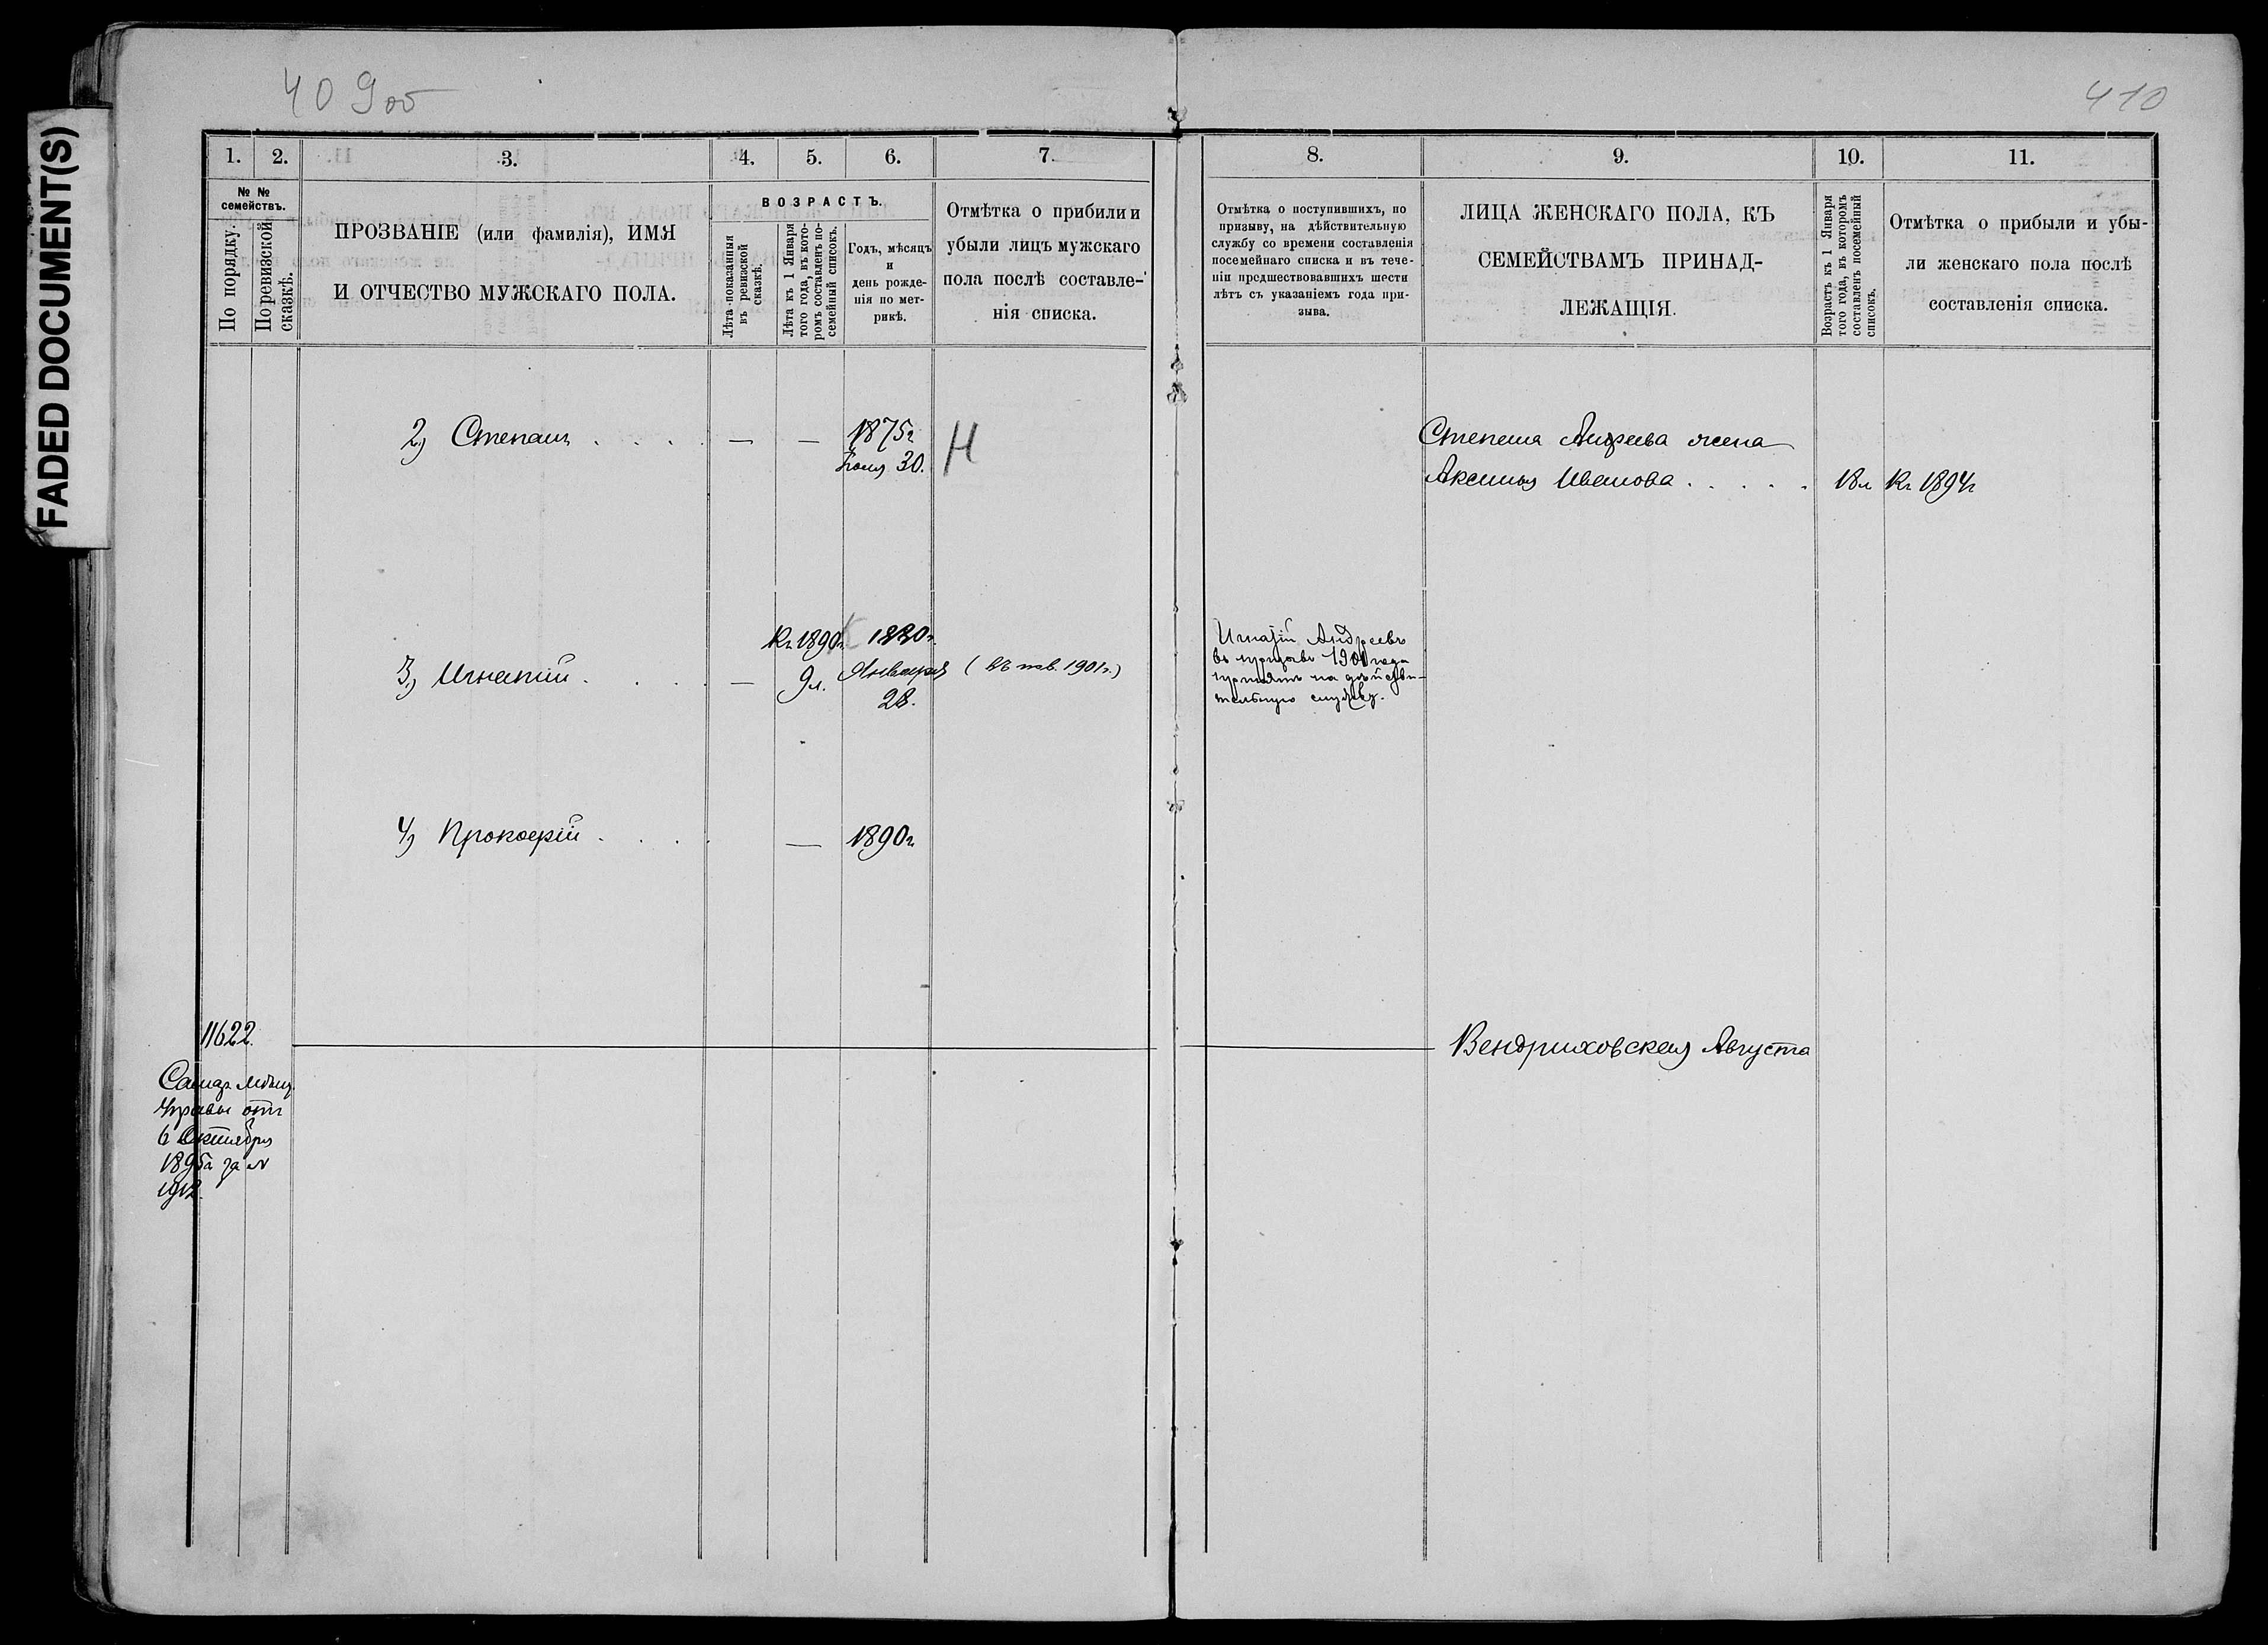 FADED DOCUMENT(S)
409об
410
1. 2. 3. 4. 5. 6. 7.
№ №
семействъ.
По порядку.
По ревизской
сказкѣ.
ПРОЗВАНІЕ (или фамилія), ИМЯ
И ОТЧЕСТВО МУЖСКАГО ПОЛА.
ВОЗРАСТЪ.
Лѣта показанныя
въ ревизской
сказкѣ.
Лѣта къ 1 Января
того года, въ кото-
ромъ составленъ по-
семейный списокъ.
Годъ, мѣсяцъ
и
день рожде-
нія по мет-
рикѣ.
Отмѣтка о прибили и
убыли лицъ мужскаго
пола послѣ составле-
нія списка.
8. 9. 10. 11.
Отмѣтка о поступившихъ, по
призыву, на дѣйствительную
службу со времени составленія
посемейнаго списка и въ тече-
ніи предшествовавшихъ шести
лѣтъ съ указаніемъ года при-
зыва.
ЛИЦА ЖЕНСКАГО ПОЛА, КЪ
СЕМЕЙСТВАМЪ ПРИНАД-
ЛЕЖАЩІЯ.
Возрастъ къ 1 Января
того года, въ которомъ
составленъ посемейный
списокъ.
Отмѣтка о прибыли и убы-
ли женскаго пола послѣ
составленія списка.
2) Степанъ . . . . — — 1875г
30. Н
Степана Андреева жена
Аксинья Иванова . . . . . 18л Къ 1894г
Къ 1890г. 1880г.
3) Игнатій . . . . — 9л. Января (въ 1901г.)
28.
Игнатій Андреевъ
въ призывъ 1901 года
принятъ на дѣйстви-
тельную службу.
4) Прокофій . . . . — 1890г
11622.
Вендриховская Августа
Самар. Мѣщ.
Управы отъ
6 Октября
1895г за №